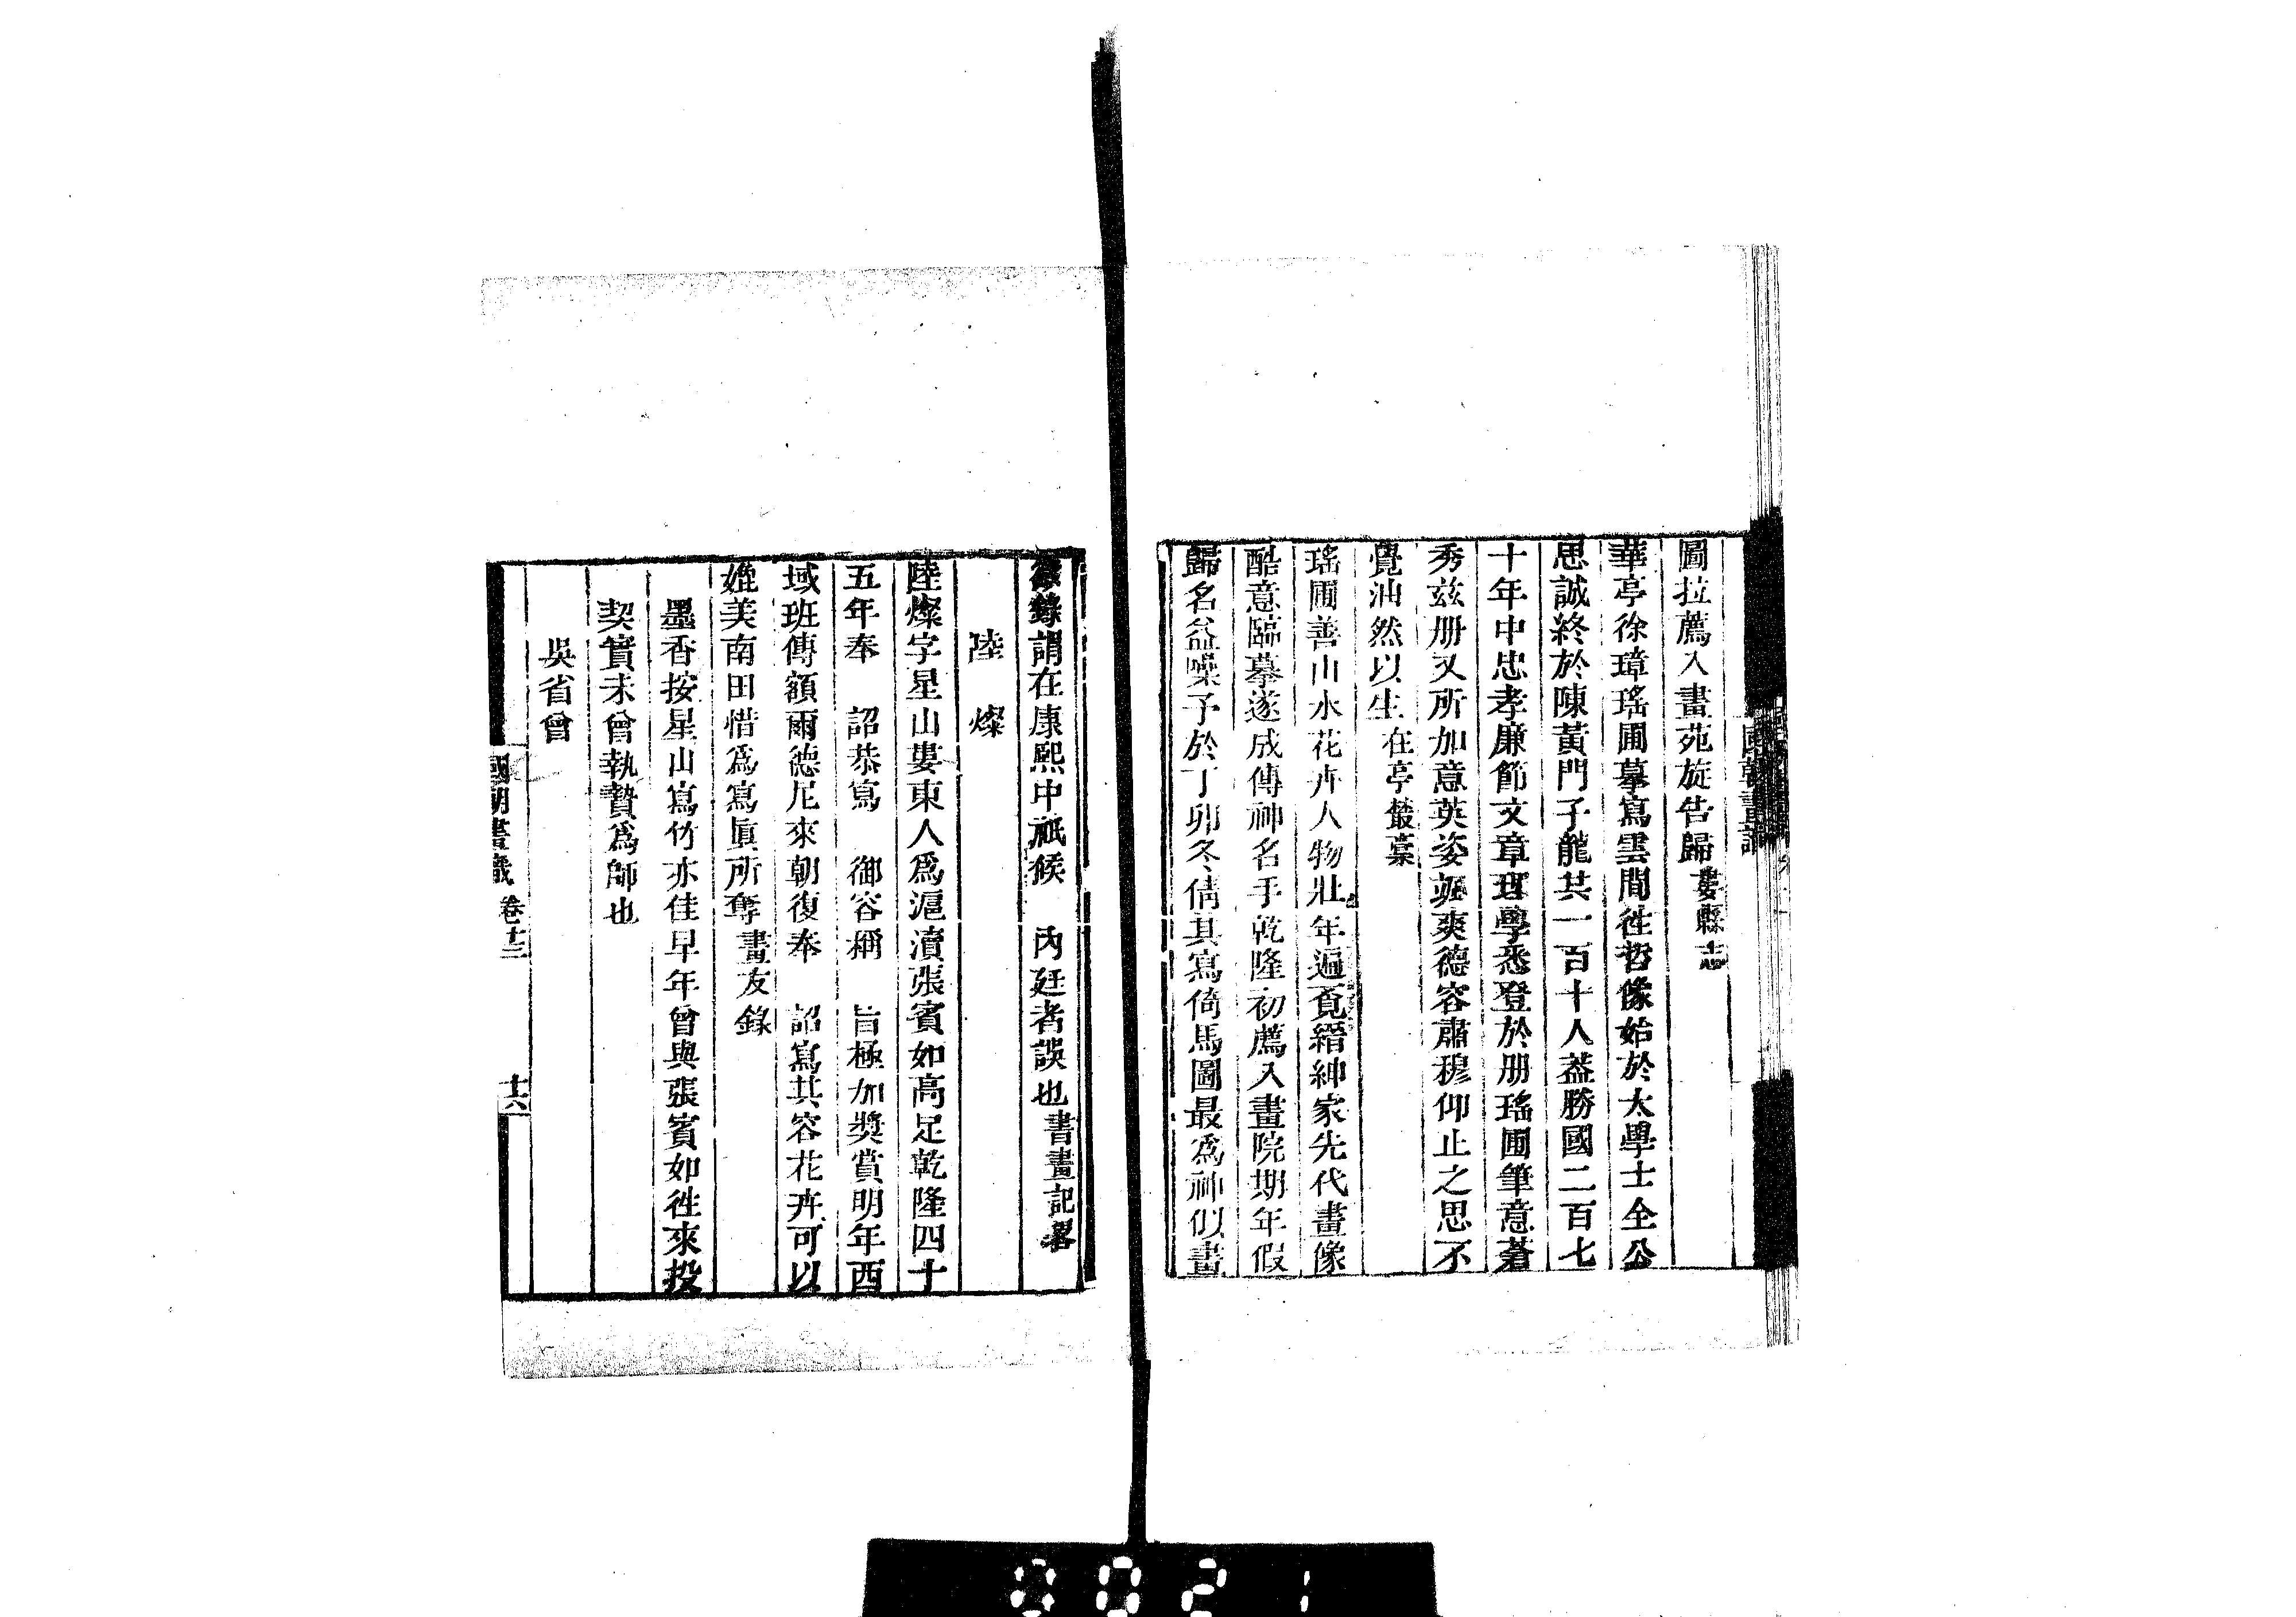 圖拉薦入畫苑旋告歸婁縣志
華亭徐璋瑤圃摹寫雲間徃哲像始於太學士全公
思誠終於陳黃門子龍共一百十人葢勝國二百七
十年中忠孝廉節文章理學悉登於册瑤圃筆意蒼
秀兹册又所加意英姿颯爽德容肅穆仰止之思不
覺油然以生在亭叢藁
瑤圃善山水花卉人物壯年遍覓縉紳家先代畫像
酷意臨摹遂成傳神名手乾隆初薦入畫院期年假
歸名益噪予於丁卯冬倩其寫倚馬圖最爲神似畫
徵錄謂在康熙中祇候 內廷者誤也書畫記畧
陸 燦
陸燦字星山婁東人爲滬瀆張賓如高足乾隆四十
五年奉 詔恭寫 御容稱 旨極加獎賞明年西
域班傳額爾德尼來朝復奉 詔寫其容花卉可以
媲美南田惜爲寫眞所奪畫友錄
墨香按星山寫竹亦佳早年曾與張賓如徃來投
契實未曾執贄爲師也
吳省曾
國朝畫識 卷十三 十六
0021